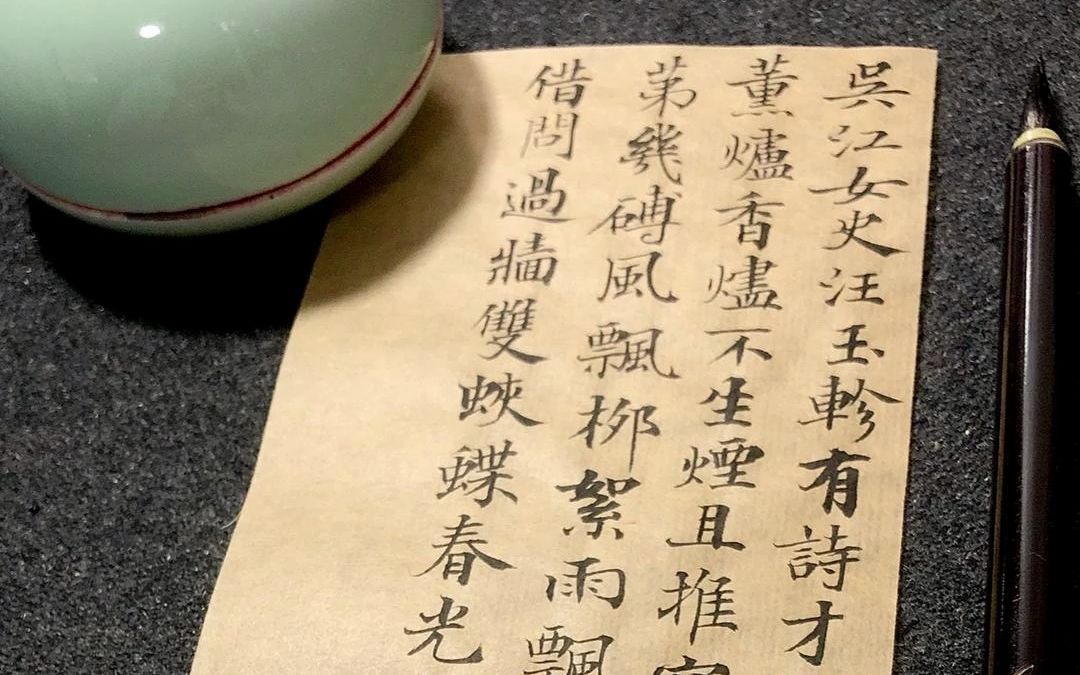 吳江女史汪玉軫有詩才
薰爐香燼不生煙且推
苐幾磚風飄柳絮雨飄
借問過牆雙蛺蝶春光